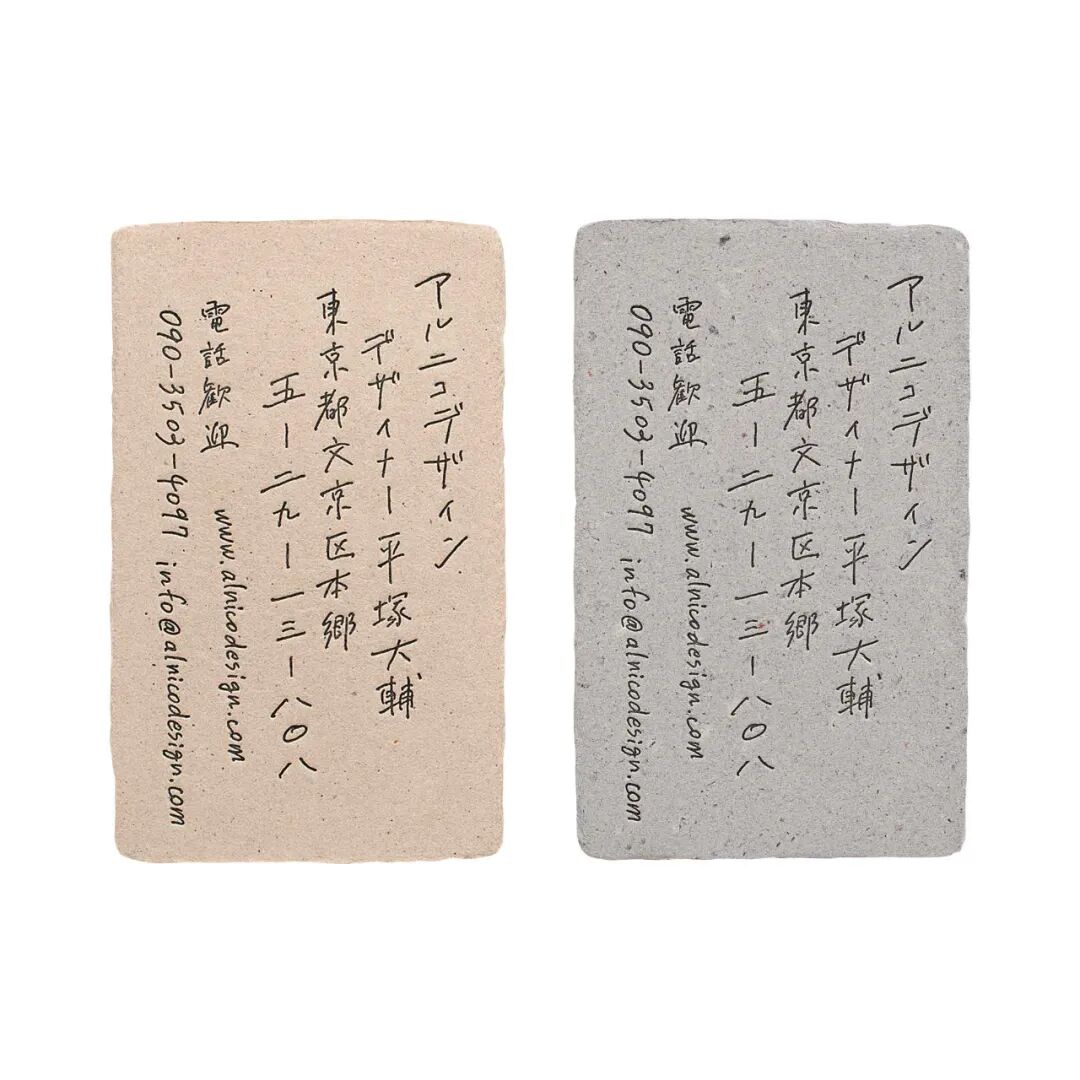 アルニコデザイン
デザイナー平塚大輔
東京都文京区本郷
五-二九-一三-八〇八
電話歓迎 www.alnicodesign.com
090-3503-4097 info@alnicodesign.com
アルニコデザイン
デザイナー平塚大輔
東京都文京区本郷
五-二九-一三-八〇八
電話歓迎 www.alnicodesign.com
090-3503-4097 info@alnicodesign.com